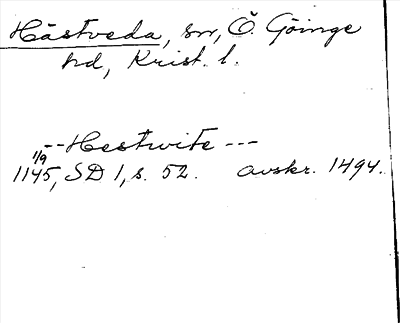 Hästveda, sn, Ö. Göinge
hd, Krist. l.
--Hestwite---
1/9
1145, SD 1, s. 52. avskr. 1494.